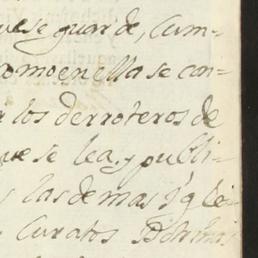 se guarde, Cum-
como en ella se con-
los derroteros de
que se lea, y publi-
las demas Ygle-
Curatos